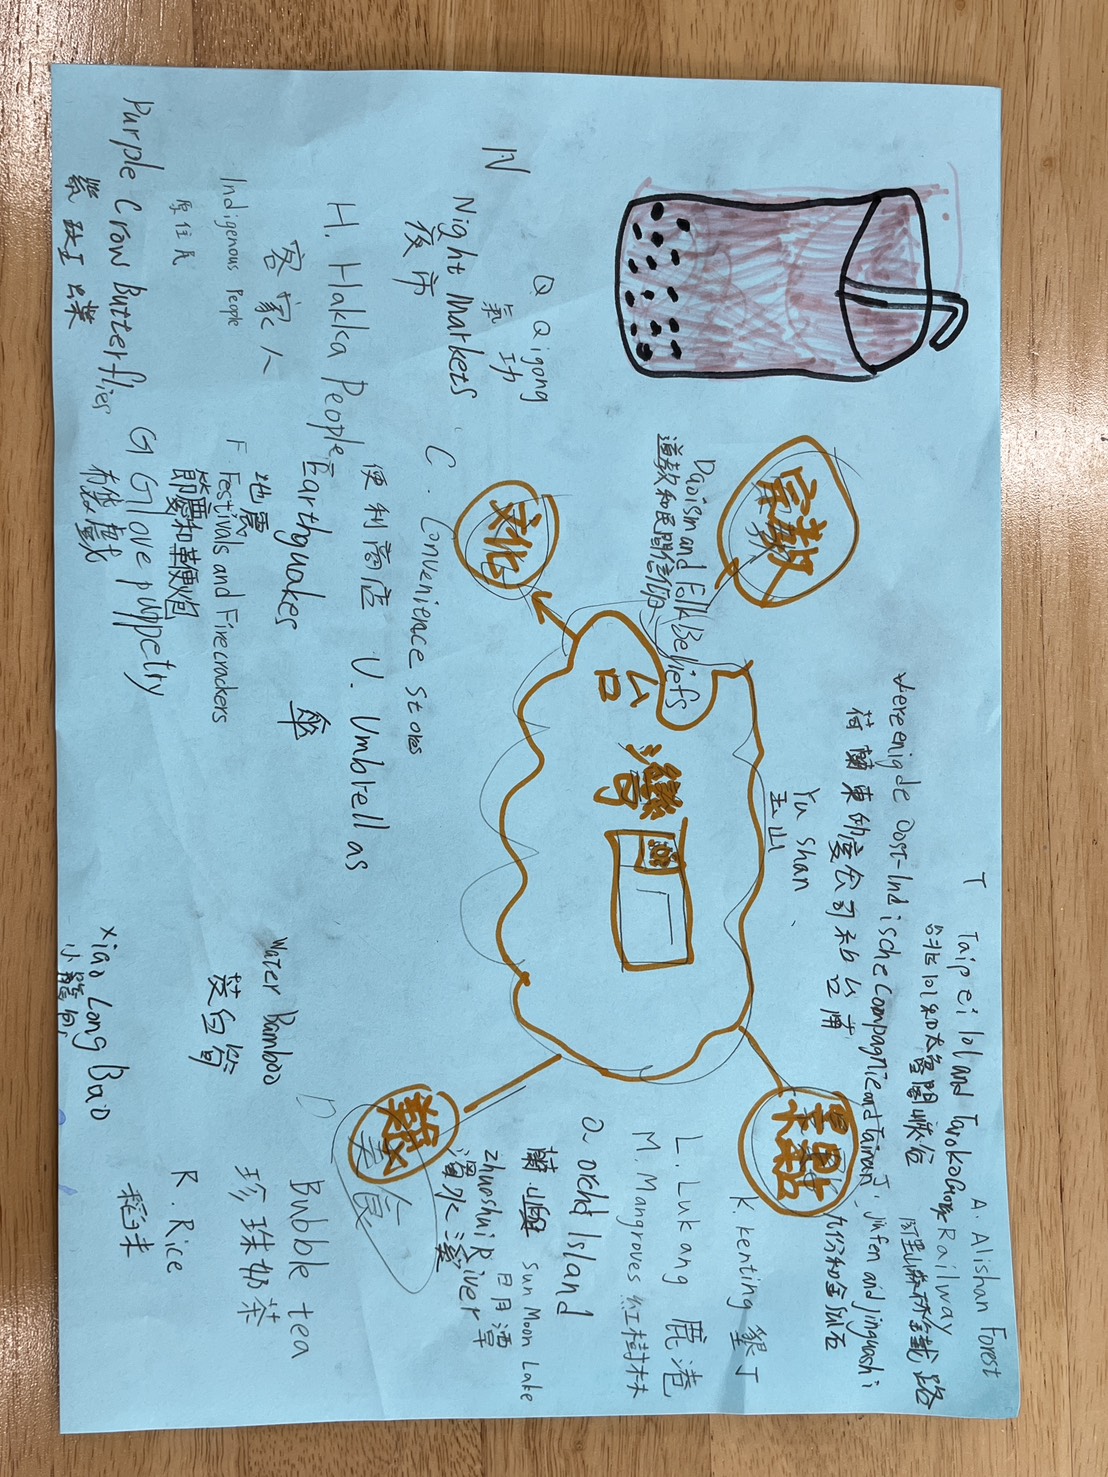 台
灣
宗教
文化
景點
美食
Daoism and Folk Beliefs
道教和民間信仰
Q Qigong
氣功
N
Night Markets
夜市
C. Convenience stores
便利商店
U. Umbrellas
傘
H. Hakka People
客家人
E Earthquakes
地震
Indigenous People
原住民
F Festivals and Firecrackers
節慶和鞭炮
Purple Crow Butterflies
紫
G Glove puppetry
布袋戲
Vereenigde Oost-Indische Compagnie and Tainan
荷蘭東印度公司和台南
Yu Shan
玉山
T
Taipei 101 and Taroko Gorge
台北101和太魯閣峽谷
A. Alishan Forest
Railway
阿里山森林鐵路
J. Jiufen and Jinguashi
九份和金瓜石
K. Kenting 墾丁
L. Lukang 鹿港
M. Mangroves 紅樹林
O Orchid Island
蘭嶼
Sun Moon Lake
日月潭
Zhuoshui River
濁水溪
B
Bubble tea
珍珠奶茶
Water Bamboo
茭白筍
R. Rice
稻米
Xiao Long Bao
小籠包